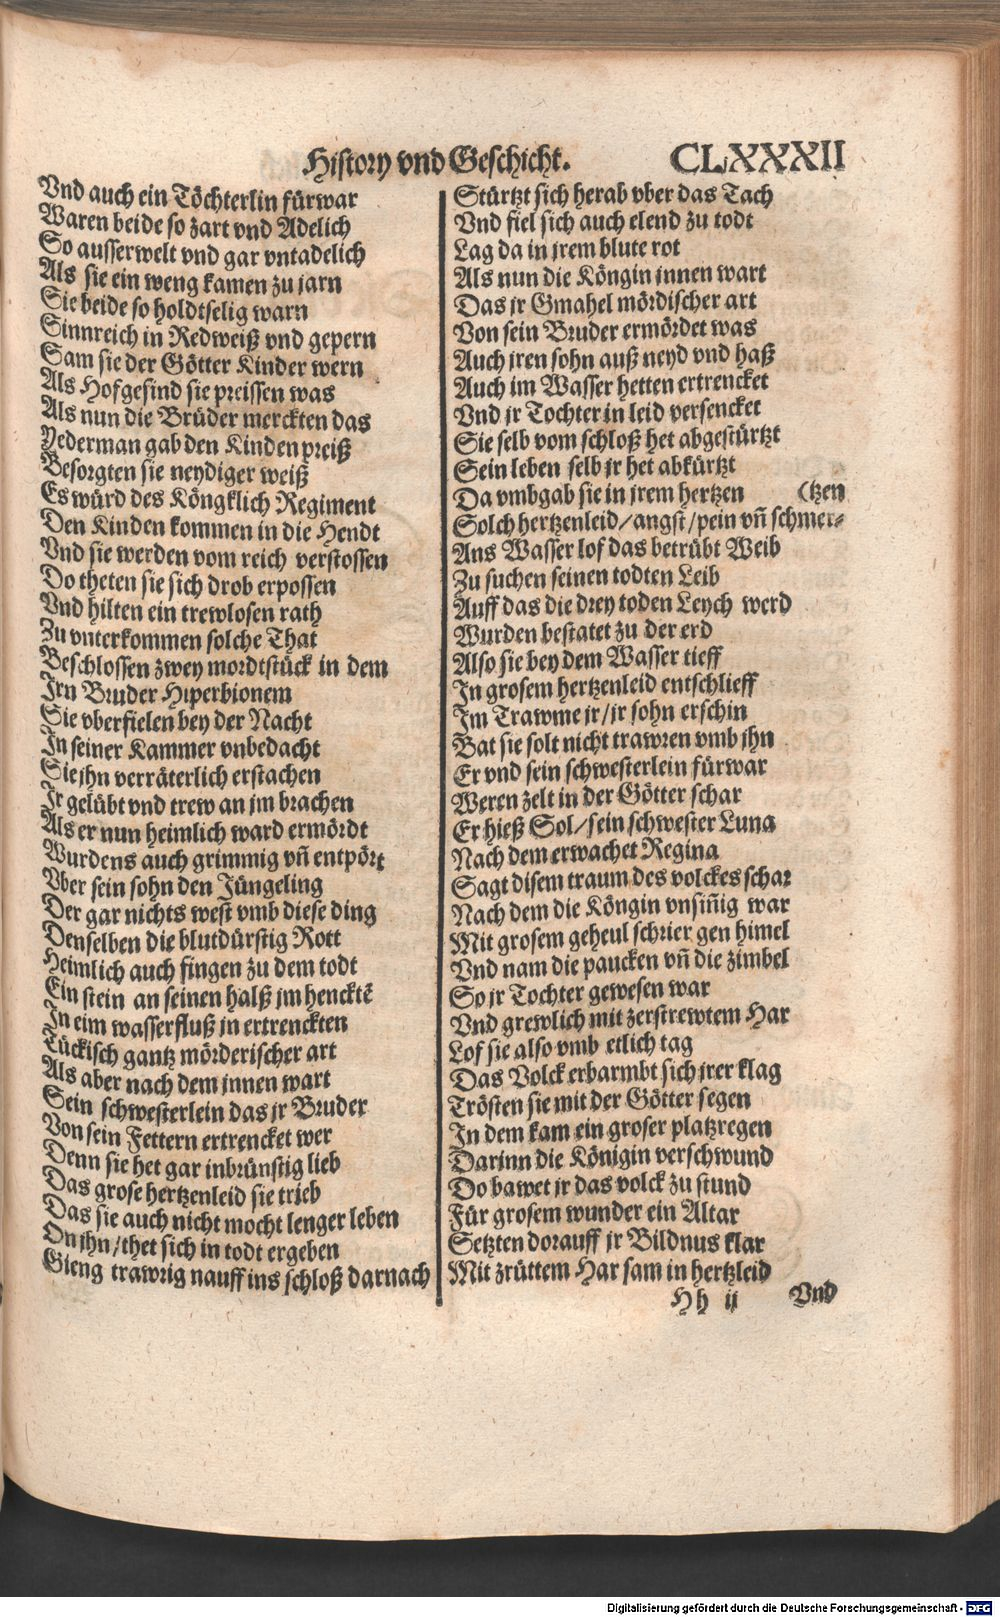 History vnd Geschicht.
CLXXXII
Vnd auch ein Töchterlin fürwar
Waren beide so zart vnd Adelich
So ausserwelt vnd gar vntadelich
Als sie ein weng kamen zu jarn
Sie beide so holdtselig warn
Sinnreich in Redweiß vnd gepern
Sam sie der Götter Kinder wern
Als Hofgesind sie preissen was
Als nun die Brüder merckten das
Yederman gab den Kinden preiß
Besorgten sie neydiger weiß
Es würd des Köngklich Regiment
Den Kinden kommen in die Hendt
Vnd sie werden vom reich verstossen
Do theten sie sich drob erpossen
Vnd hilten ein trewlosen rath
Zu vnterkommen solche That
Beschlossen zwey mordtstück in dem
Irn Bruder Hiperbionem
Sie vberfielen bey der Nacht
In seiner Kammer vnbedacht
Sie jhn verräterlich erstachen
Ir gelübt vnd trew an jm brachen
Als er nun heimlich ward ermördt
Wurdens auch grimmig vn̄ entpört
Vber sein sohn den Jüngeling
Der gar nichts west vmb diese ding
Denselben die blutdürstig Rott
Heimlich auch fingen zu dem todt
Ein stein an seinen halß jm hencktē
In eim wasserfluß jn ertrenckten
Tückisch gantz mörderischer art
Als aber nach dem jnnen wart
Sein schwesterlein das jr Bruder
Von sein Fettern ertrencket wer
Denn sie het gar inbrünstig lieb
Das grose hertzenleid sie trieb
Das sie auch nicht mocht lenger leben
On jhn/thet sich in todt ergeben
Gieng trawrig nauff ins schloß darnach
Stürtzt sich herab vber das Tach
Vnd fiel sich auch elend zu todt
Lag da in jrem blute rot
Als nun die Köngin jnnen wart
Das jr Gmahel mördischer art
Von sein Bruder ermördet was
Auch jren sohn auß neyd vnd haß
Auch im Wasser hetten ertrencket
Vnd jr Tochter in leid versencket
Sie selb vom schloß het abgestürtzt
Sein leben selb jr het abkürtzt
Da vmbgab sie in jrem hertzen (tzen
Solch hertzenleid/angst/pein vn̄ schmer-
Ans Wasser lof das betrübt Weib
Zu suchen seinen todten Leib
Auff das die drey toden Leych werd
Wurden bestatet zu der erd
Also sie bey dem Wasser tieff
In grosem hertzenleid entschlieff
Im Trawme jr/jr sohn erschin
Bat sie solt nicht trawren vmb jhn
Er vnd sein schwesterlein fürwar
Weren zelt in der Götter schar
Er hieß Sol/sein schwester Luna
Nach dem erwachet Regina
Sagt disem traum des volckes schar
Nach dem die Köngin vnsin̄ig war
Mit grosem geheul schrier gen himel
Vnd nam die paucken vn̄ die zimbel
So jr Tochter gewesen war
Vnd grewlich mit zerstrewtem Har
Lof sie also vmb etlich tag
Das Volck erbarmbt sich jrer klag
Trösten sie mit der Götter segen
In dem kam ein groser platzregen
Darinn die Königin verschwund
Do bawet jr das volck zu stund
Für grosem wunder ein Altar
Setzten dorauff jr Bildnus klar
Mit zrüttem Har sam in hertzleid
Hh ij
Vnd
Digitalisierung gefördert durch die Deutsche Forschungsgemeinschaft - DFG